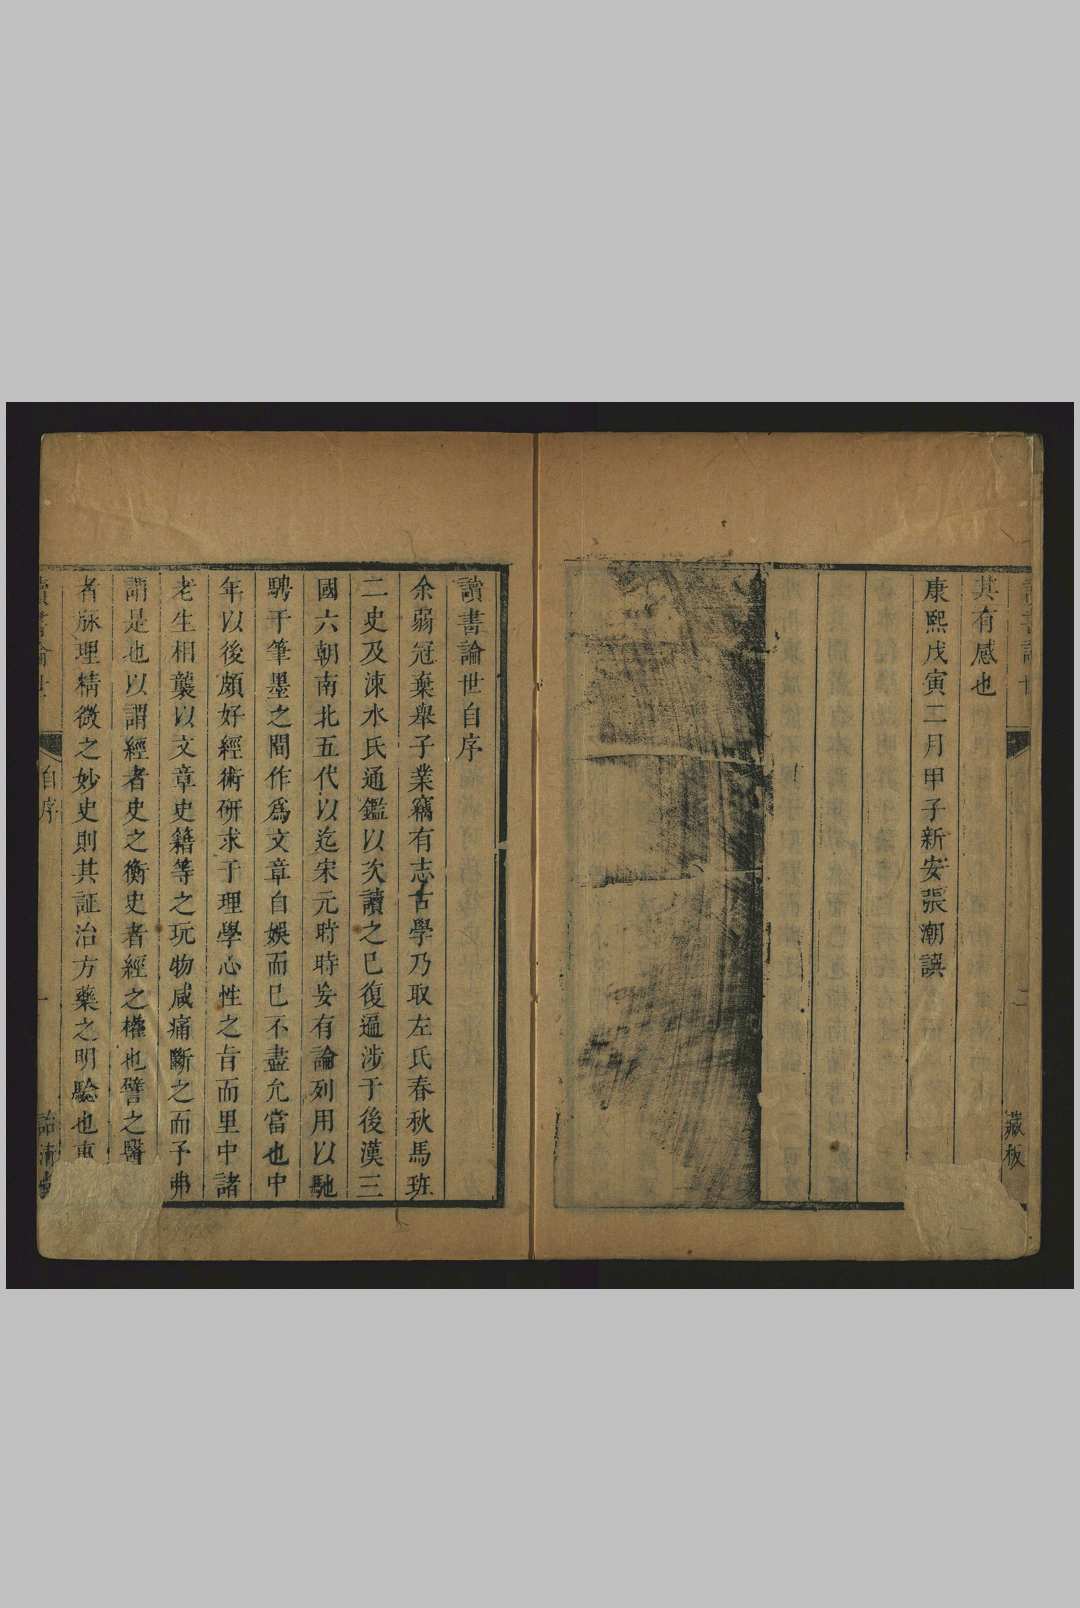 其有感也
康熙戊寅二月甲子新安張潮譔
藏板
讀書論世自序
余弱冠棄舉子業竊有志古學乃取左氏春秋馬班
二史及涑水氏通鑑以次讀之已復遍涉于後漢三
國六朝南北五代以迄宋元時時妄有論列用以馳
騁于筆墨之間作爲文章自娛而已不盡允當也中
年以後頗好經術研求于理學心性之旨而里中諸
老生相襲以文章史籍等之玩物咸痛斷之而予弗
謂是也以謂經者史之衡史者經之權也譬之醫
者脉理精微之妙史則其証治方藥之明驗也
讀書論世
自序
一
詒清